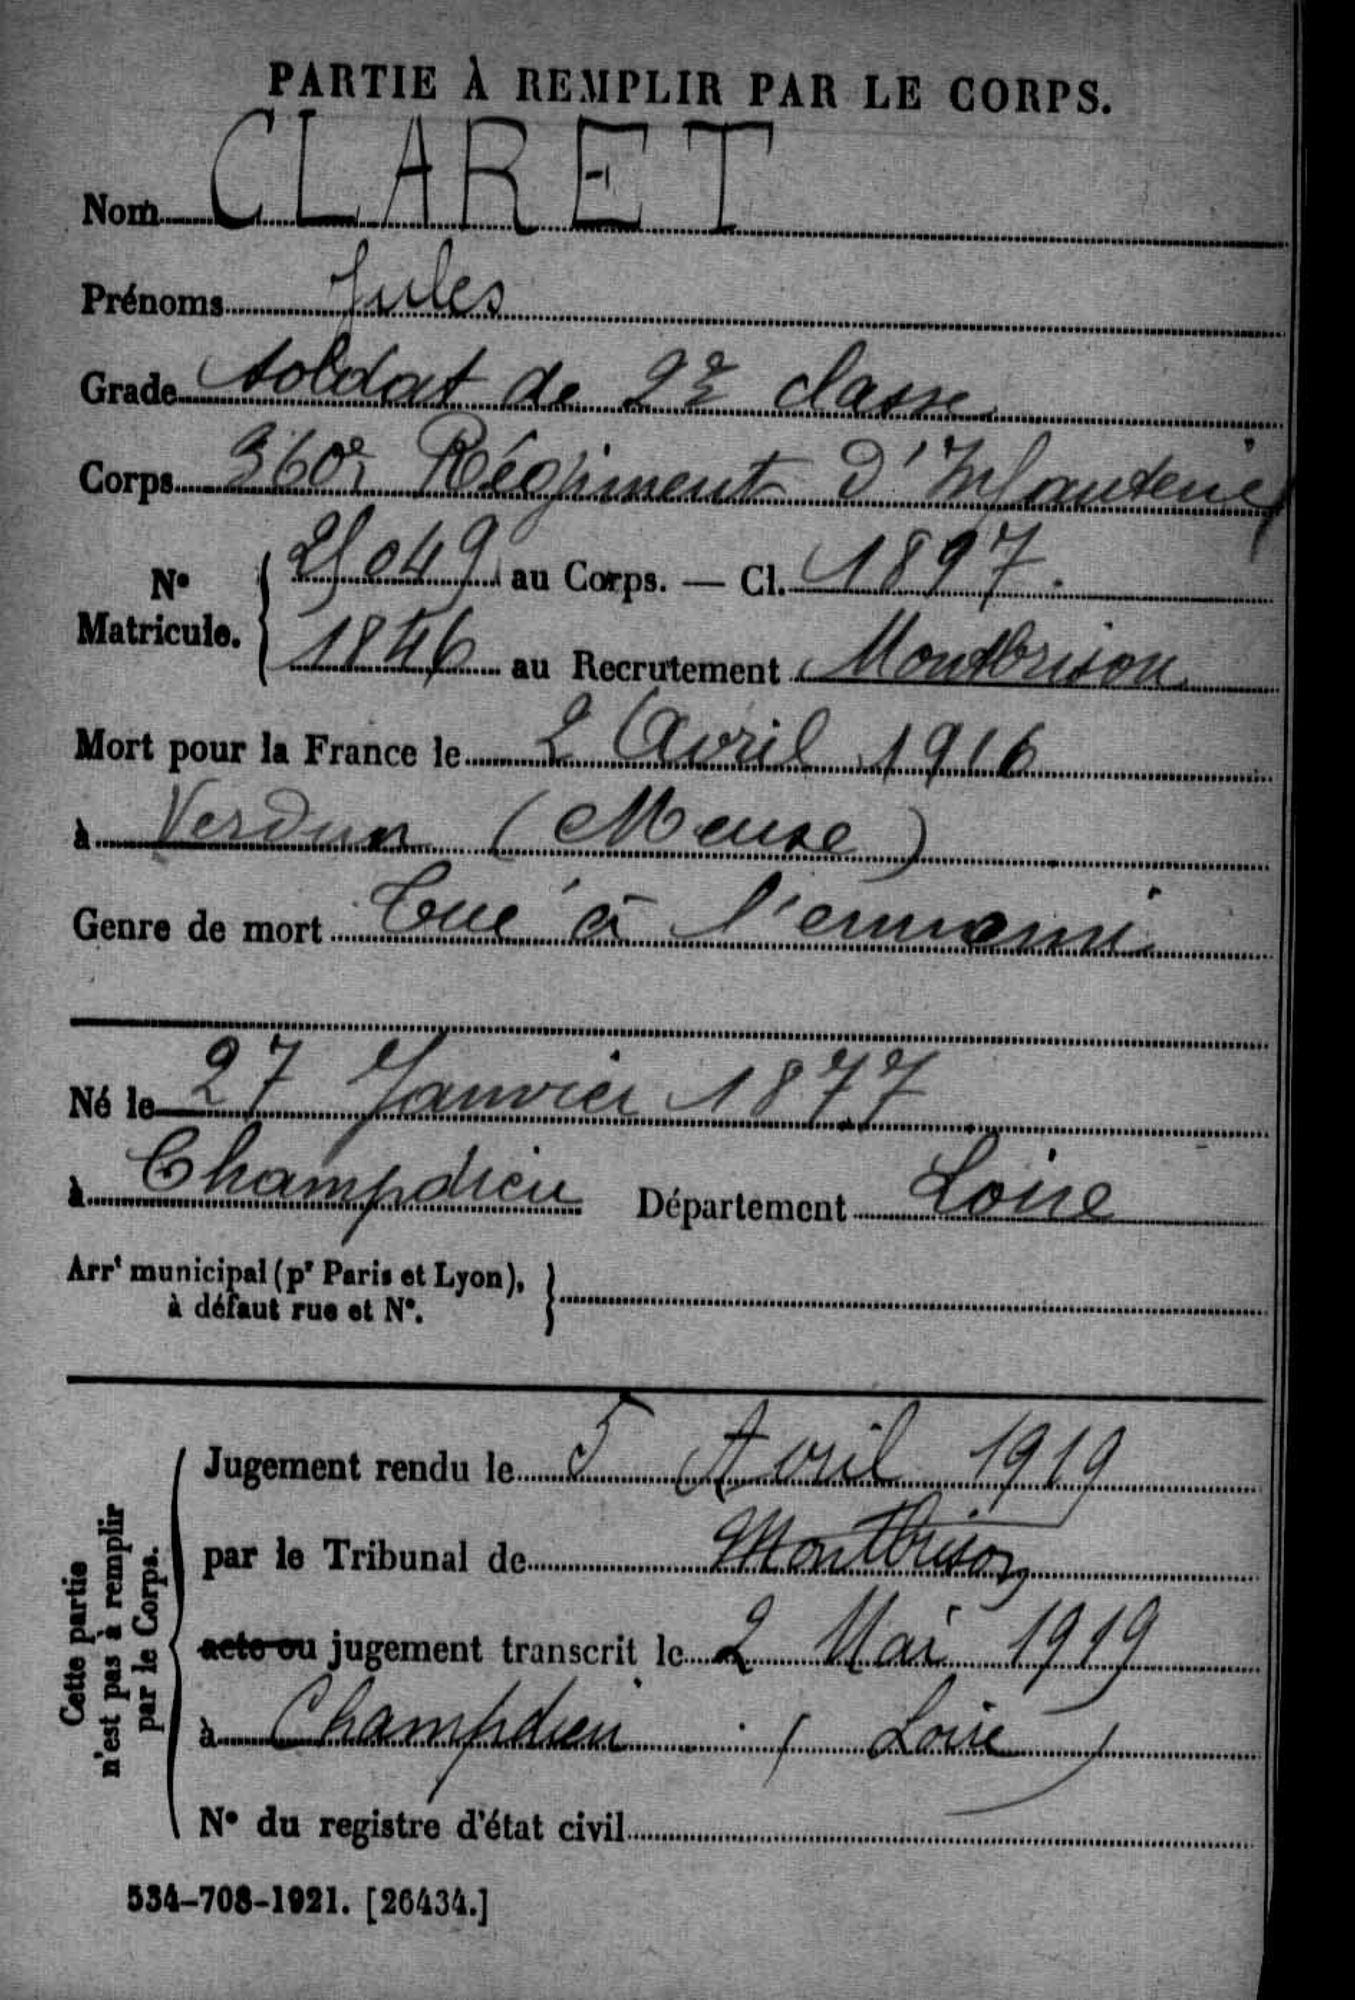 PARTIE À REMPLIR PAR LE CORPS.
Nom CLARET
Prénoms Jules
Grade soldat de 2e classe
Corps 360e Régiment d'Infanterie
No Matricule. 25049 au Corps. — Cl. 1897.
1846 au Recrutement Montbrison
Mort pour la France le 2 Avril 1916
à Verdun (Meuse)
Genre de mort Tué à l'ennemi
Né le 27 Janvier 1877
à Champdieu Département Loire
Arrt municipal (pr Paris et Lyon),
à défaut rue et No.
Cette partie
n'est pas à remplir
par le Corps.
Jugement rendu le 5 Avril 1919
par le Tribunal de Montbrison
acte ou jugement transcrit le 2 Mai 1919
à Champdieu (Loire)
No du registre d'état civil
534-708-1921. [26434.]